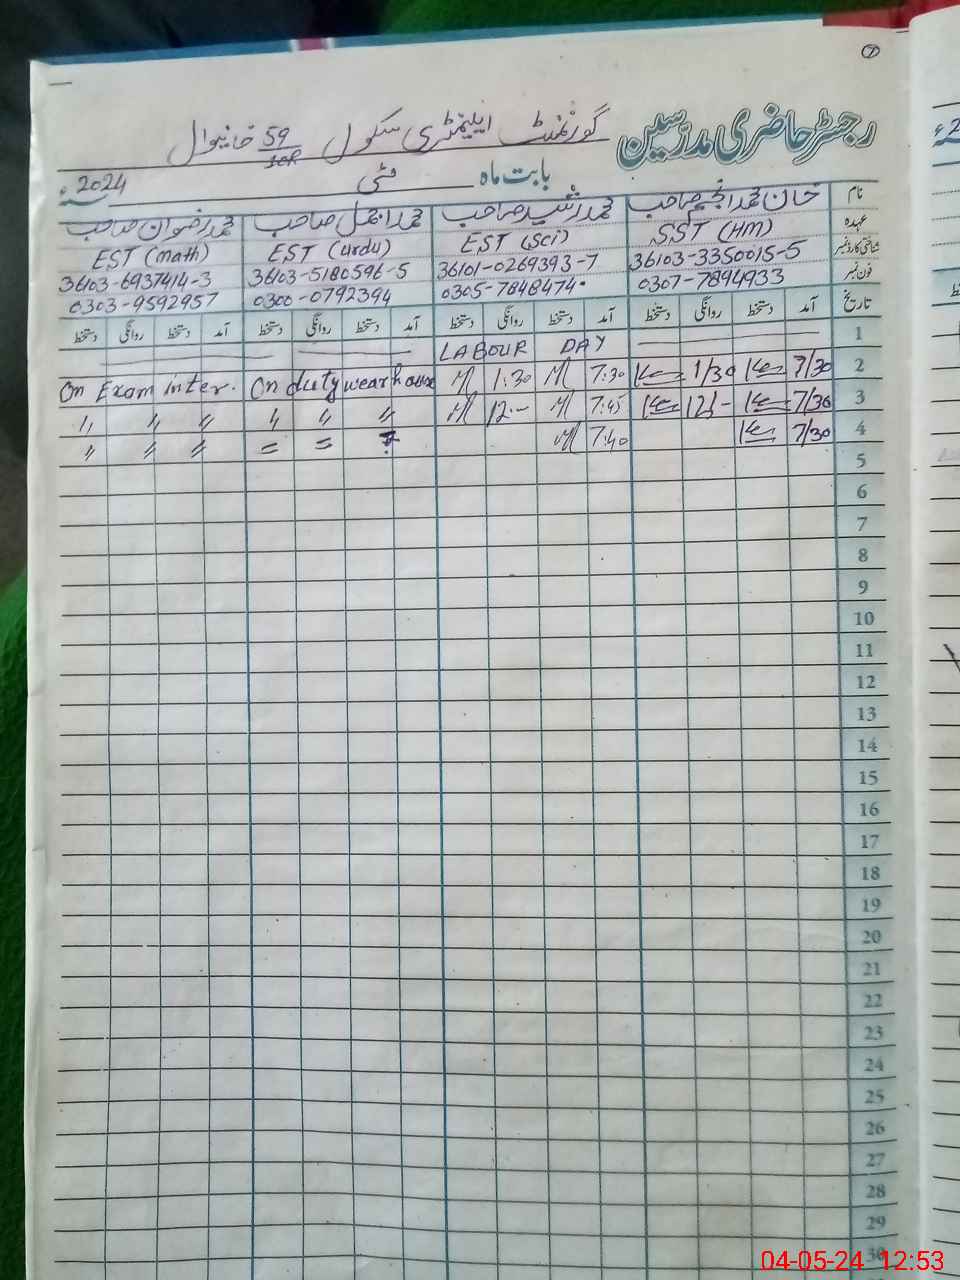 7
رجسٹر حاضری مدرسین گورنمنٹ ایلیمنٹری سکول 59/10R خانیوال
بابت ماہ مئی 2024ء
نام خان محمد انجم صاحب محمد رشید صاحب محمد اجمل صاحب محمد رضوان صاحب
عہدہ SST (HM) EST (Sci) EST (Urdu) EST (Math)
شناختی کارڈ نمبر 36103-3350015-5 36101-0269393-7 36103-5180596-5 36103-6937414-3
فون نمبر 0307-7894933 0305-7848474 0300-0792394 0303-9592957
تاریخ آمد دستخط روانگی دستخط آمد دستخط روانگی دستخط آمد دستخط روانگی دستخط آمد دستخط روانگی دستخط
1 LABOUR DAY
2 7/30 1/30 7:30 1:30 On duty wearhouse On Exam inter.
3 7/30 12/- 7:45 12:- " " " " " "
4 7/30 7:40 = = " " "
5
6
7
8
9
10
11
12
13
14
15
16
17
18
19
20
21
22
23
24
25
26
27
28
29
30
04-05-24 12:53